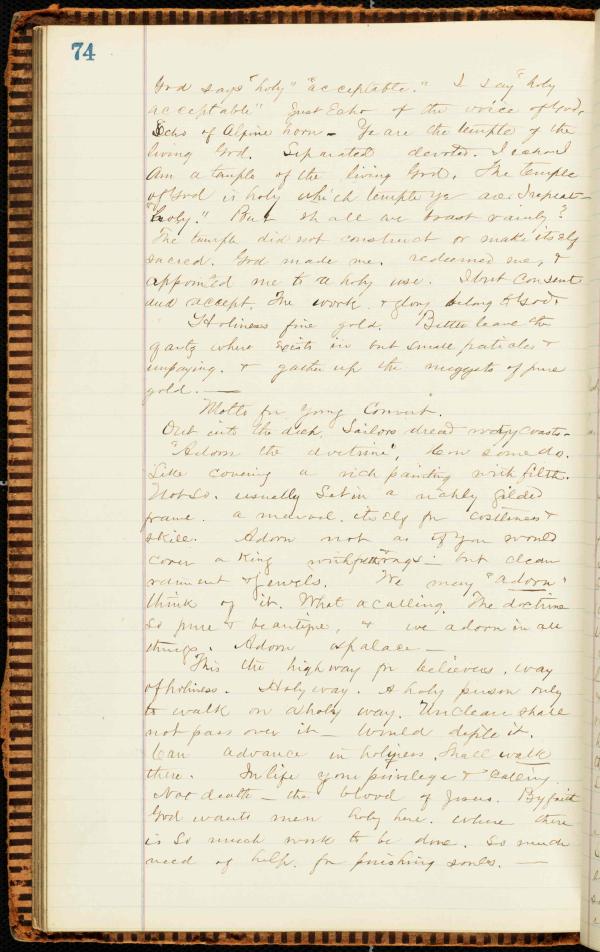 74
God says "holy" "acceptable." I say "holy
acceptable" Just Echo of the voice of God.
Echo of Alpine horn - Ye are the temple of the
living God. Separated devoted. I echo I
am a temple of the living God. The temple
of God is holy which temple ye are. I repeat -
"holy." But shall we boast vainly?
The temple did not construct or make itself
sacred. God made me. redeemed me, &
appointed me to a holy use. I but consent
and accept. The work & glory belong to God.
Holiness fine gold. Better leave the
quartz where exists in but small paticles &
unpaying. & gather up the nuggets of pure
gold. —
Motto for young Convert.
Out into the deep. Sailors dread rocky coasts -
"Adorn the doctrine", how some do.
Like covering a rich painting with filth.
Not so. usually set in a richly gilded
frame. a marvel itself for costliness &
skill. Adorn not as if you would
cover a King with filthy rags - but clean
raiment & jewels. We may "adorn"
think of it. What a calling. The doctrine
so pure & beautiful, & we adorn in all
things. Adorn a palace —
This the highway for believers. way
of holiness. Holy way. A holy person only
to walk on a holy way. "Unclean shall
not pass over it - would defile it.
Can advance in holiness. Shall walk
there. In life your privilege & calling.
Not death - the blood of Jesus. By faith
God wants men holy here. where there
is so much work to be done. so much
need of help. for perishing souls. —